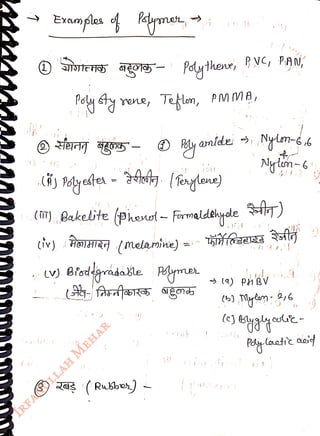 → Examples of Polymer, →
① योगात्मक बहुलक — Polythene, PVC, PAN,
Polystyrene, Teflon, PMMA,
② संघनन बहुलक — ① Polyamide → Nylon-6,6
+
Nylon-6
(ii) Polyester = टेरीलीन (Terylene)
(III) Bakelite (Phenol - Formaldehyde रेजीन)
(iv) मेलामाइन (melamine) = फॉर्मेल्डिहाइड रेजीन
(v) Biodegradable Polymer → (a) PHBV
(जैव-निम्नीकारक बहुलक (b) Nylon-2,6
(c) Polyglycolic -
Poly lactic acid
③ रबड़ (Rubber) —
IRFANULLAH MEHAR